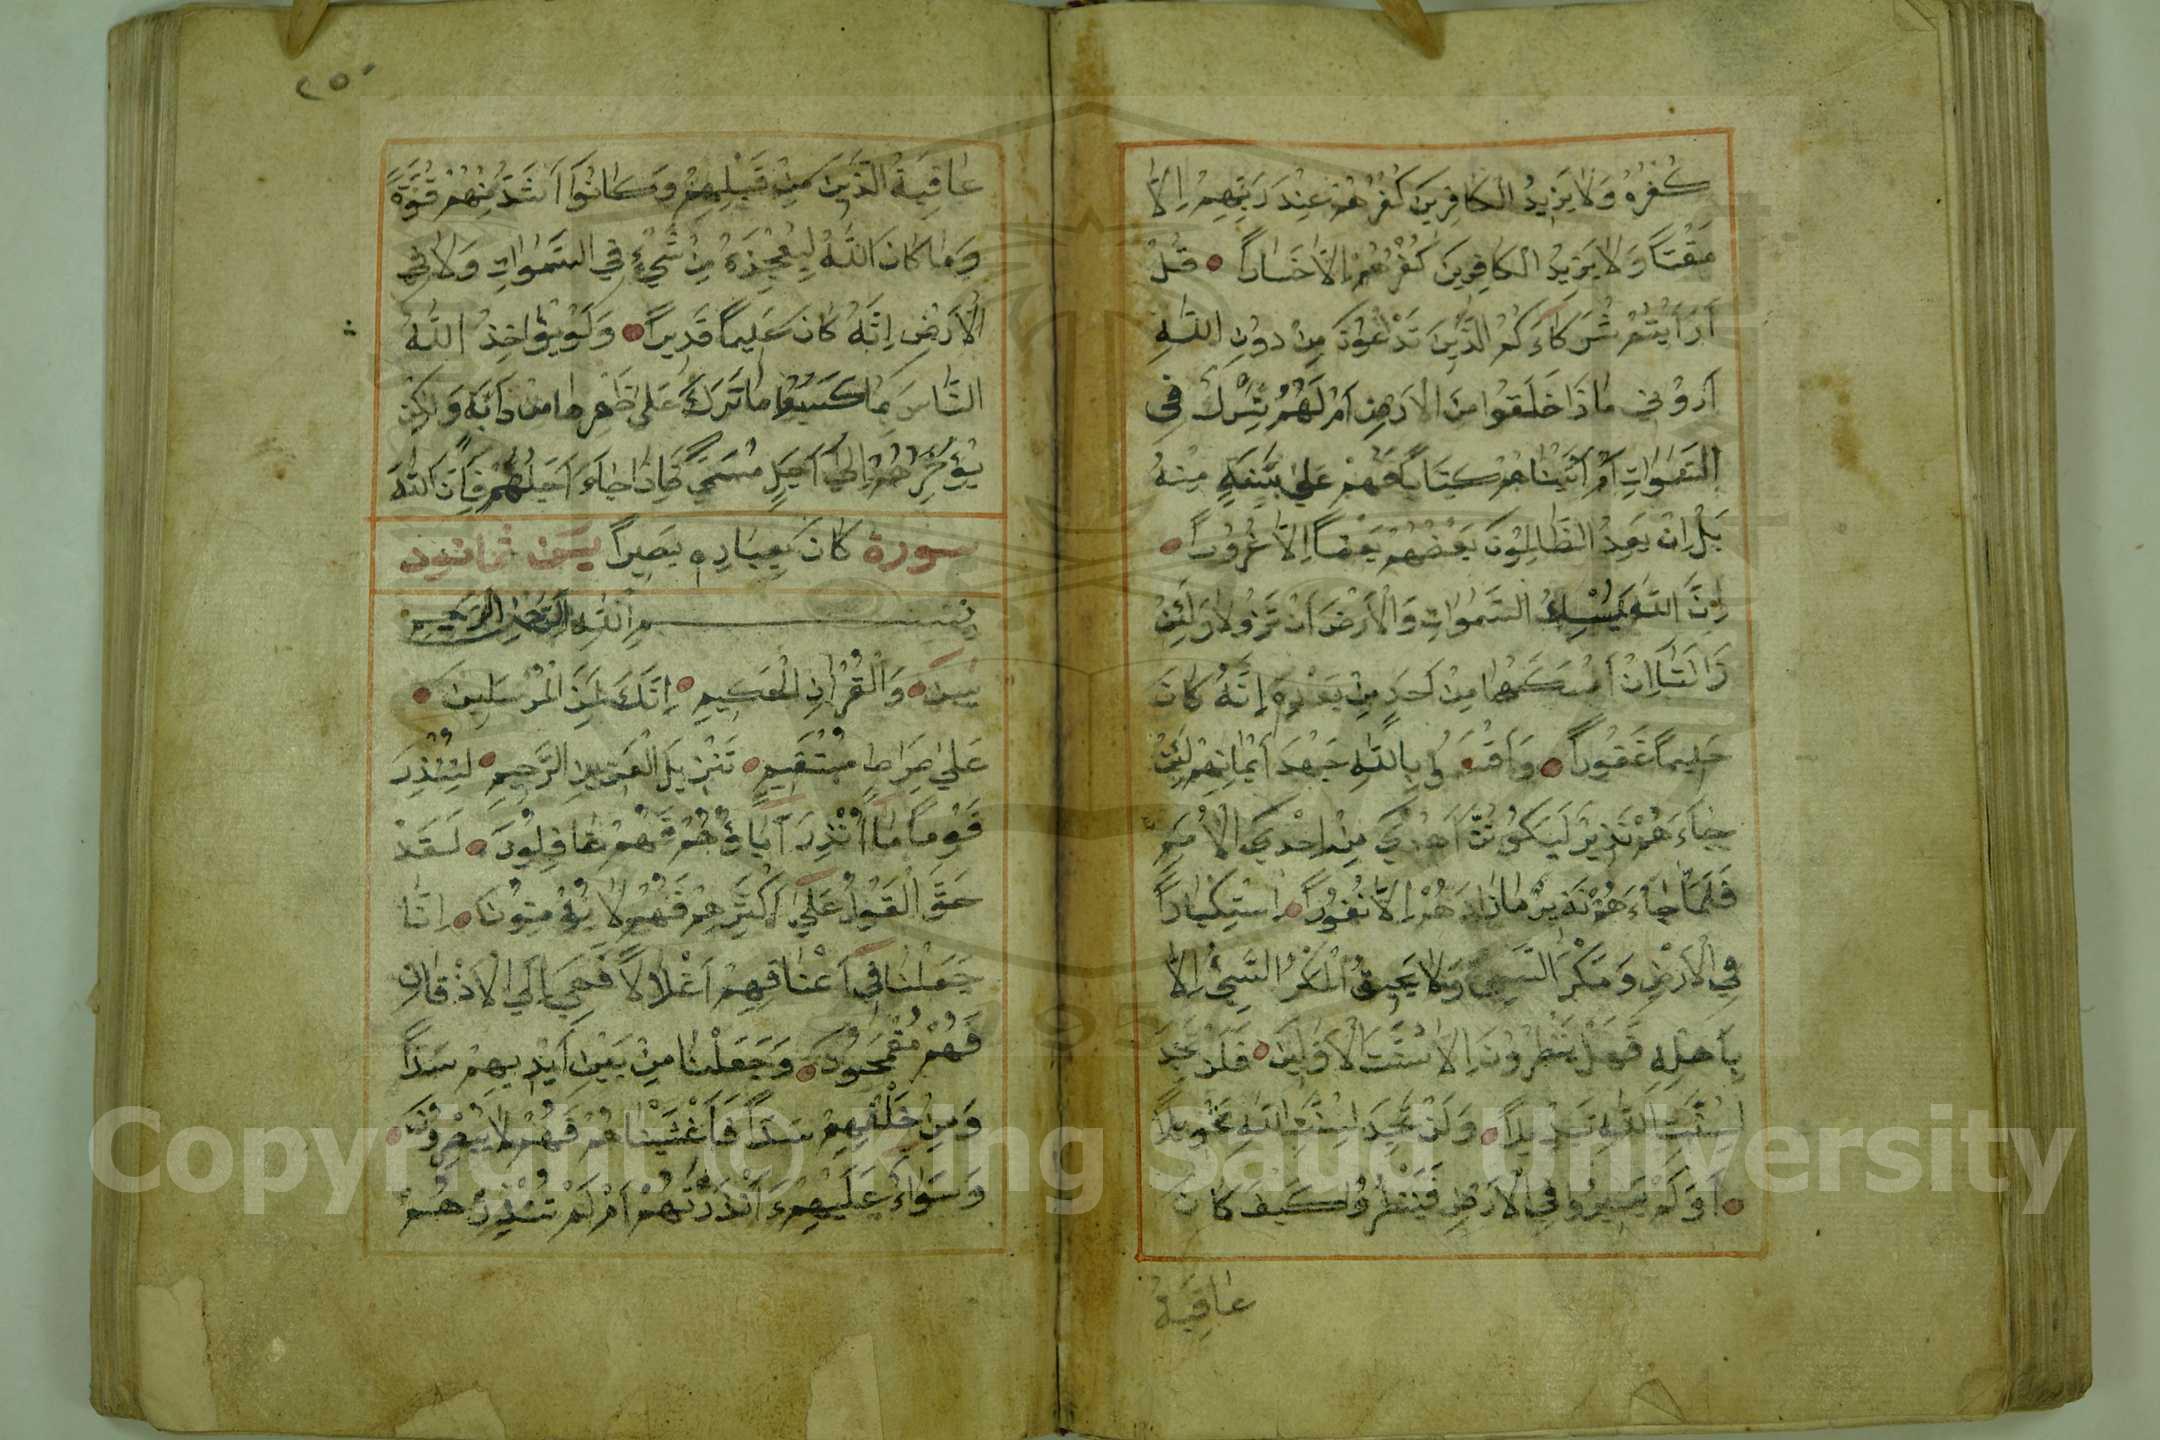 كُفْرُهُ وَلَا يَزِيدُ الْكَافِرِينَ كُفْرُهُمْ عِنْدَ رَبِّهِمْ اِلَّا
مَقْتًا وَلَا يَزِيدُ الْكَافِرِينَ كُفْرُهُمْ اِلَّا خَسَارًا قُلْ
اَرَاَيْتُمْ شُرَكَاءَكُمُ الَّذِينَ تَدْعُونَ مِنْ دُونِ اللّٰهِ
اَرُونِي مَاذَا خَلَقُوا مِنَ الْاَرْضِ اَمْ لَهُمْ شِرْكٌ فِى
السَّمٰوَاتِ اَمْ اٰتَيْنَاهُمْ كِتَابًا فَهُمْ عَلٰى بَيِّنَةٍ مِنْهُ
بَلْ اِنْ يَعِدُ الظَّالِمُونَ بَعْضُهُمْ بَعْضًا اِلَّا غُرُورًا
اِنَّ اللّٰهَ يُمْسِكُ السَّمٰوَاتِ وَالْاَرْضَ اَنْ تَزُولَا وَلَئِنْ
زَالَتَا اِنْ اَمْسَكَهُمَا مِنْ اَحَدٍ مِنْ بَعْدِهِ اِنَّهُ كَانَ
حَلِيمًا غَفُورًا وَاَقْسَمُوا بِاللّٰهِ جَهْدَ اَيْمَانِهِمْ لَئِنْ
جَاءَهُمْ نَذِيرٌ لَيَكُونُنَّ اَهْدٰى مِنْ اِحْدَى الْاُمَمِ
فَلَمَّا جَاءَهُمْ نَذِيرٌ مَا زَادَهُمْ اِلَّا نُفُورًا اسْتِكْبَارًا
فِي الْاَرْضِ وَمَكْرَ السَّيِّئِ وَلَا يَحِيقُ الْمَكْرُ السَّيِّئُ اِلَّا
بِاَهْلِهِ فَهَلْ يَنْظُرُونَ اِلَّا سُنَّتَ الْاَوَّلِينَ فَلَنْ تَجِدَ
لِسُنَّتِ اللّٰهِ تَبْدِيلًا وَلَنْ تَجِدَ لِسُنَّتِ اللّٰهِ تَحْوِيلًا
اَوَلَمْ يَسِيرُوا فِي الْاَرْضِ فَيَنْظُرُوا كَيْفَ كَانَ
عَاقِبَةُ
٢٥٠
عَاقِبَةُ الَّذِينَ مِنْ قَبْلِهِمْ وَكَانُوا اَشَدَّ مِنْهُمْ قُوَّةً
وَمَا كَانَ اللّٰهُ لِيُعْجِزَهُ مِنْ شَيْءٍ فِي السَّمٰوَاتِ وَلَا فِى
الْاَرْضِ اِنَّهُ كَانَ عَلِيمًا قَدِيرًا وَلَوْ يُؤَاخِذُ اللّٰهُ
النَّاسَ بِمَا كَسَبُوا مَا تَرَكَ عَلٰى ظَهْرِهَا مِنْ دَابَّةٍ وَلٰكِنْ
يُؤَخِّرُهُمْ اِلٰى اَجَلٍ مُسَمًّى فَاِذَا جَاءَ اَجَلُهُمْ فَاِنَّ اللّٰهَ
سورة كَانَ بِعِبَادِهِ بَصِيرًا يٰسٓ ثمانون
بسم الله الرحمن الرحيم
يٰسٓ وَالْقُرْاٰنِ الْحَكِيمِ اِنَّكَ لَمِنَ الْمُرْسَلِينَ
عَلٰى صِرَاطٍ مُسْتَقِيمٍ تَنْزِيلَ الْعَزِيزِ الرَّحِيمِ لِتُنْذِرَ
قَوْمًا مَا اُنْذِرَ اٰبَاؤُهُمْ فَهُمْ غَافِلُونَ لَقَدْ
حَقَّ الْقَوْلُ عَلٰى اَكْثَرِهِمْ فَهُمْ لَا يُؤْمِنُونَ اِنَّا
جَعَلْنَا فِي اَعْنَاقِهِمْ اَغْلَالًا فَهِيَ اِلَى الْاَذْقَانِ
فَهُمْ مُقْمَحُونَ وَجَعَلْنَا مِنْ بَيْنِ اَيْدِيهِمْ سَدًّا
وَمِنْ خَلْفِهِمْ سَدًّا فَاَغْشَيْنَاهُمْ فَهُمْ لَا يُبْصِرُونَ
وَسَوَاءٌ عَلَيْهِمْ ءَاَنْذَرْتَهُمْ اَمْ لَمْ تُنْذِرْهُمْ
Copyright © King Saud University